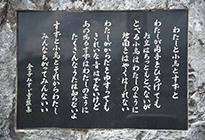 わたしと小鳥とすずと
わたしが両手をひろげても
お空はちっともとべないが
とべる小鳥はわたしのように
地面をはやくは走れない
わたしがからだをゆすっても
きれいな音はでないけど
あの鳴るすずはわたしのように
たくさんなうたは知らないよ
すずと小鳥とそれからわたし
みんなちがってみんないい
金子みすゞ